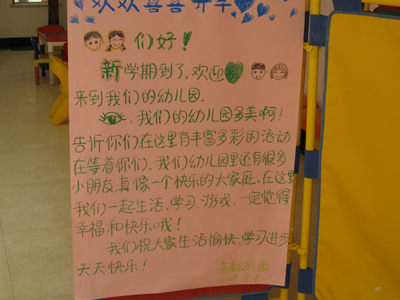 欢欢喜喜开学
们好!
新学期到了,欢迎
来到我们的幼儿园.
,我们的幼儿园多美啊!
告诉你们在这里有丰富多彩的活动
在等着你们,我们幼儿园里还有很多
小朋友,真像一个快乐的大家庭,在这里
我们一起生活、学习、游戏,一定觉得
幸福和快乐哦!
我们祝大家生活愉快、学习进步
天天快乐!